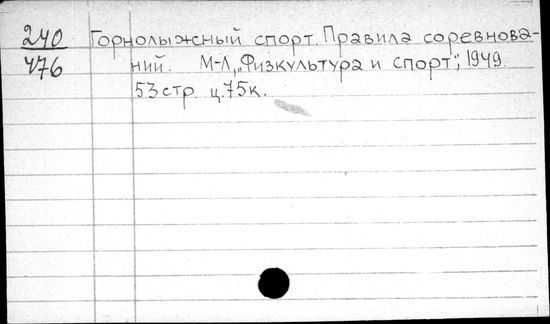 240 Горнолыжный спорт. Правила соревнова-
476 ний. М-Л, „Физкультура и спорт", 1949.
53 стр. ц. 75к.